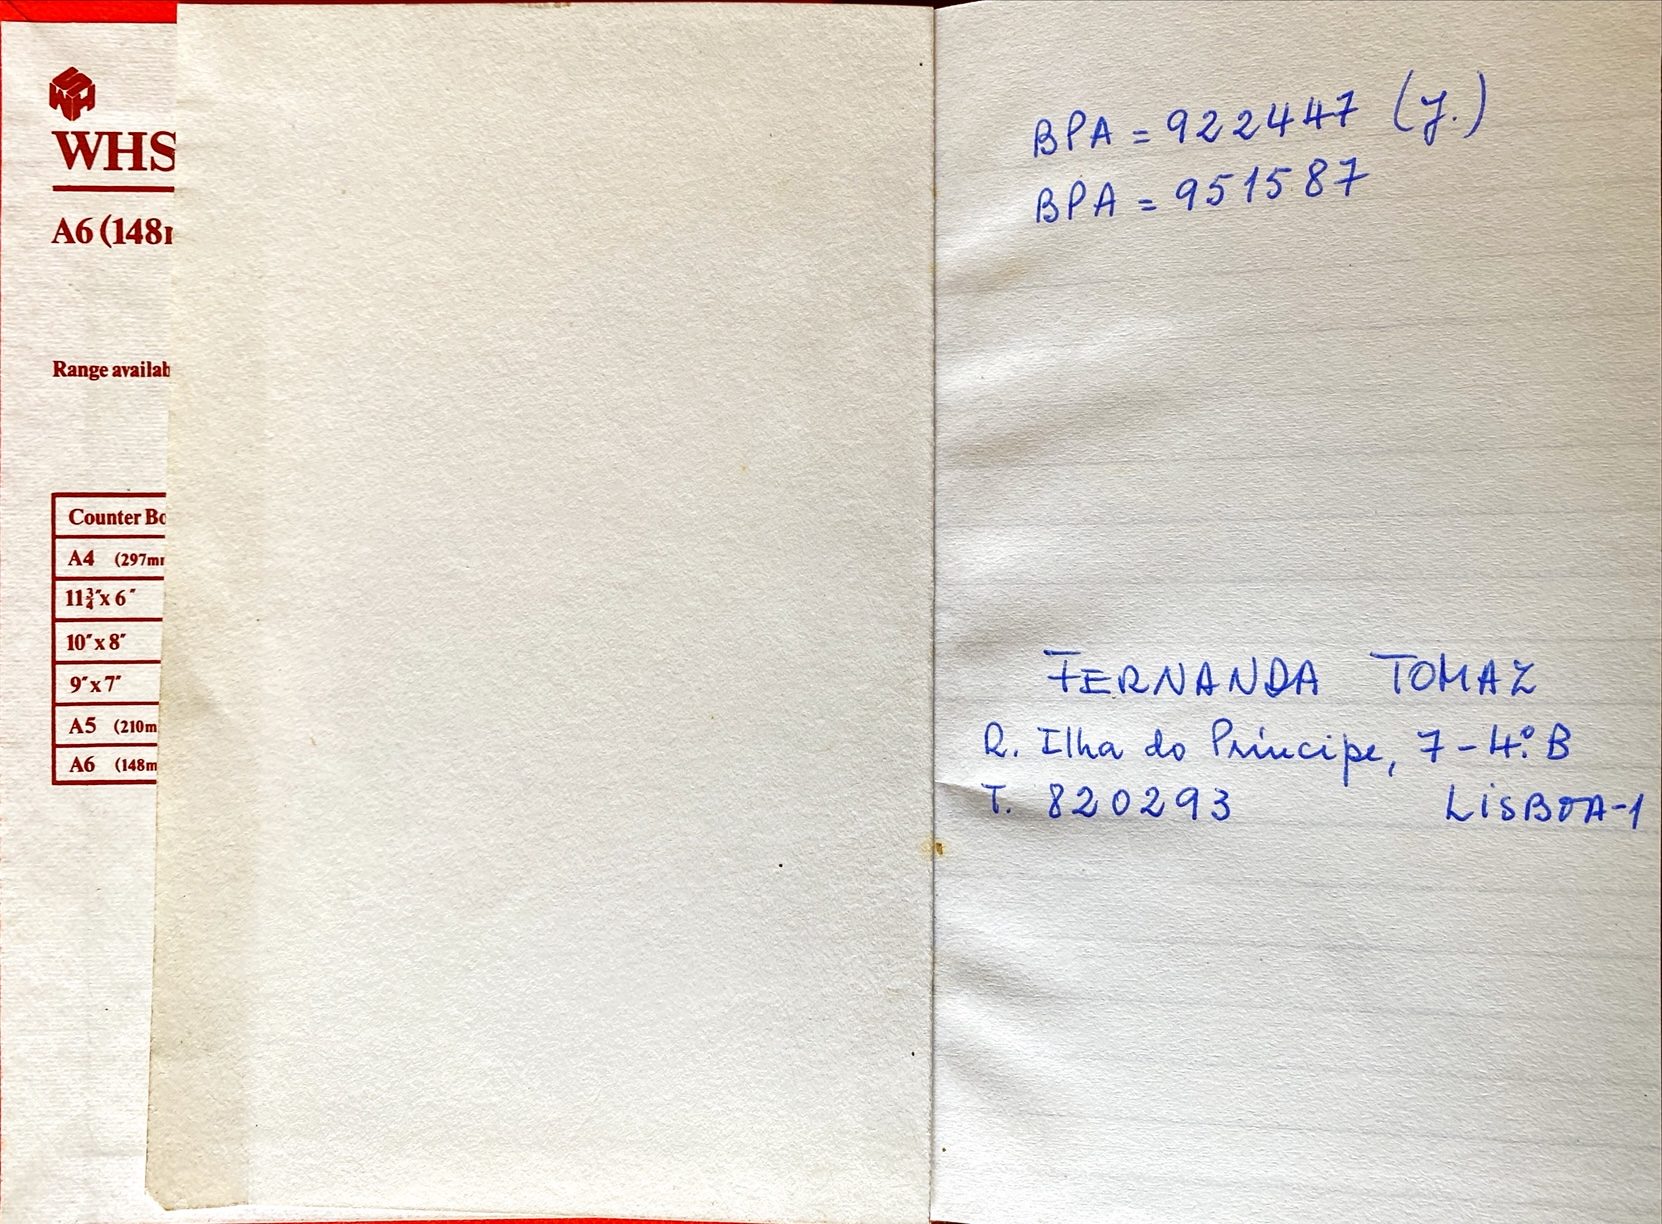 WHS
A6 (148m
Range availab
Counter Bo
A4 (297mm
11¾" x 6"
10" x 8"
9" x 7"
A5 (210m
A6 (148m
BPA = 922447 (y.)
BPA = 951587
FERNANDA TOMAZ
R. Ilha do Príncipe, 7-4.º B
T. 820293 LISBOA-1